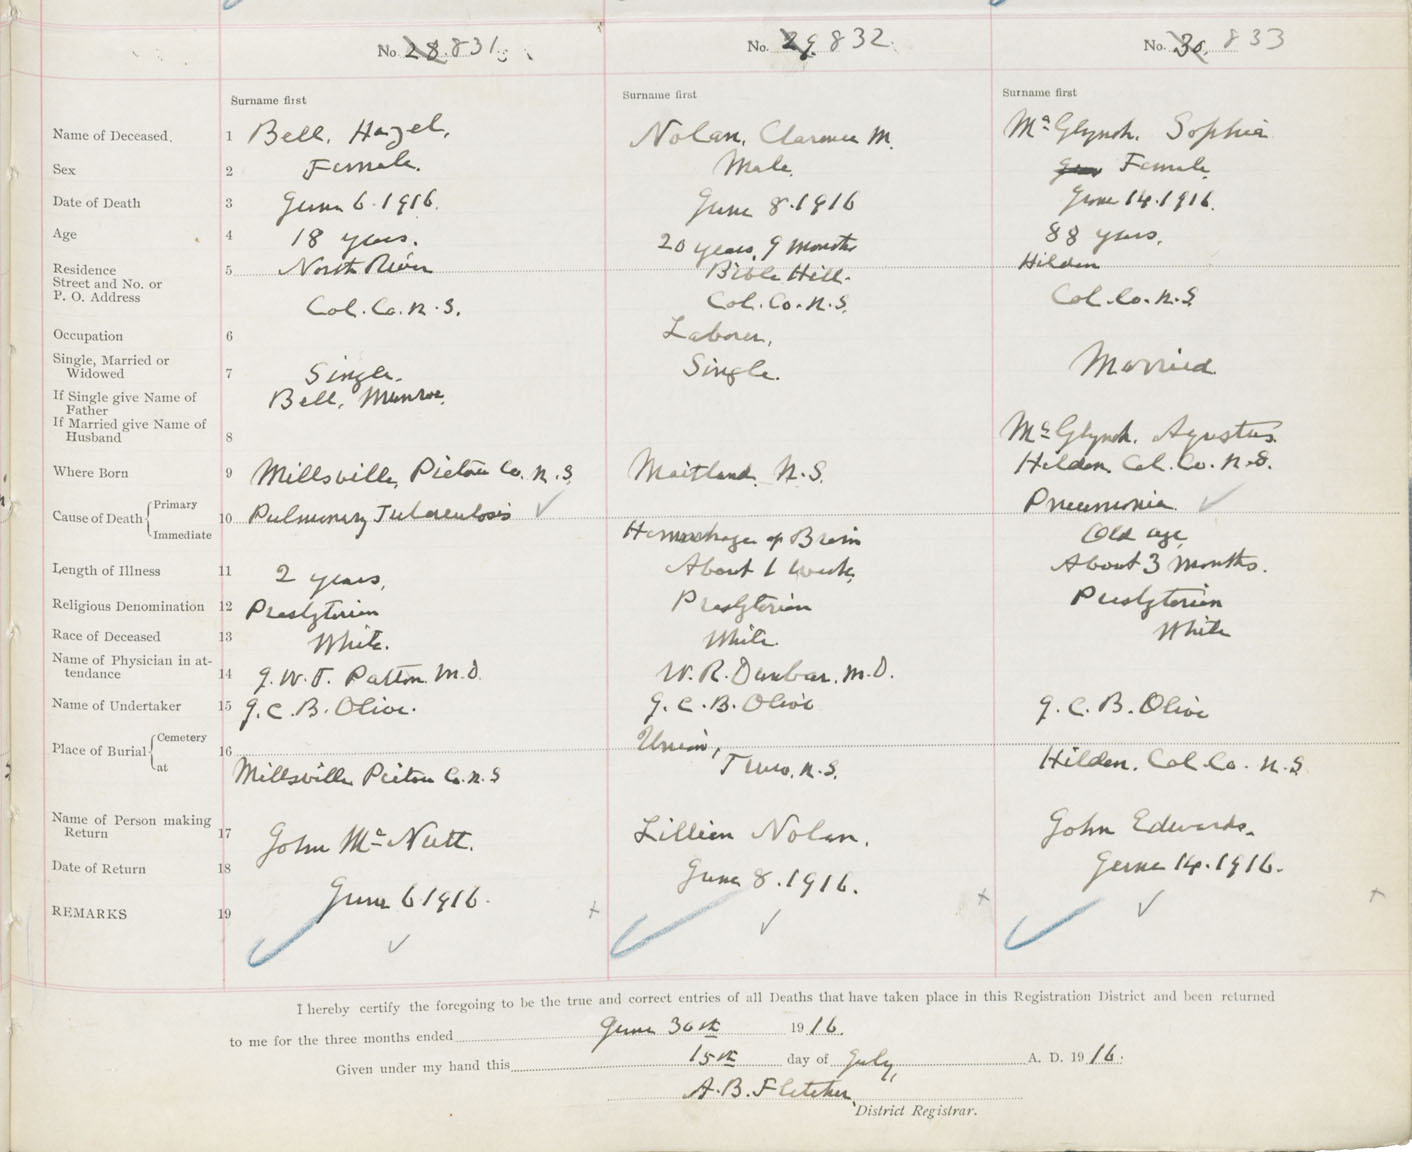 No. 28. 831.
No. 29. 832.
No. 30. 833
Surname first
Surname first
Surname first
Name of Deceased. 1 Bell, Hazel. Nolan, Clarence M. McGlynch, Sophia
Sex 2 Female. Male. Female.
Date of Death 3 June 6. 1916. June 8. 1916 June 14. 1916.
Age 4 18 years. 20 years, 9 months 88 years.
Residence 5 North River Bible Hill. Hilden
Street and No. or
P. O. Address Col. Co. N. S. Col. Co. N. S. Col. Co. N. S.
Occupation 6 Laborer.
Single, Married or
Widowed 7 Single. Single. Married
If Single give Name of
Father Bell, Munroe.
If Married give Name of
Husband 8 McGlynch, Agustus.
Where Born 9 Millsville, Pictou Co. N. S. Maitland. N. S. Hilden Col. Co. N. S.
Cause of Death Primary 10 Pulmonary Tuberculosis Pneumonia
Immediate Hemorrhage of Brain Old age
Length of Illness 11 2 years. About 1 week. About 3 months.
Religious Denomination 12 Presbyterian Presbyterian Presbyterian
Race of Deceased 13 White. White. White
Name of Physician in at-
tendance 14 J. W. T. Patton M. D. W. R. Dunbar. M. D.
Name of Undertaker 15 J. C. B. Olive. J. C. B. Olive J. C. B. Olive
Place of Burial Cemetery 16 Union,
at Millsville Pictou Co. N. S Truro. N. S. Hilden. Col. Co. N. S.
Name of Person making
Return 17 John McNutt. Lillien Nolan. John Edwards.
Date of Return 18 June 6 1916. June 8. 1916. June 14. 1916.
REMARKS 19
I hereby certify the foregoing to be the true and correct entries of all Deaths that have taken place in this Registration District and been returned
to me for the three months ended June 30th 1916.
Given under my hand this 15th day of July, A. D. 1916.
A. B. Fletcher
District Registrar.